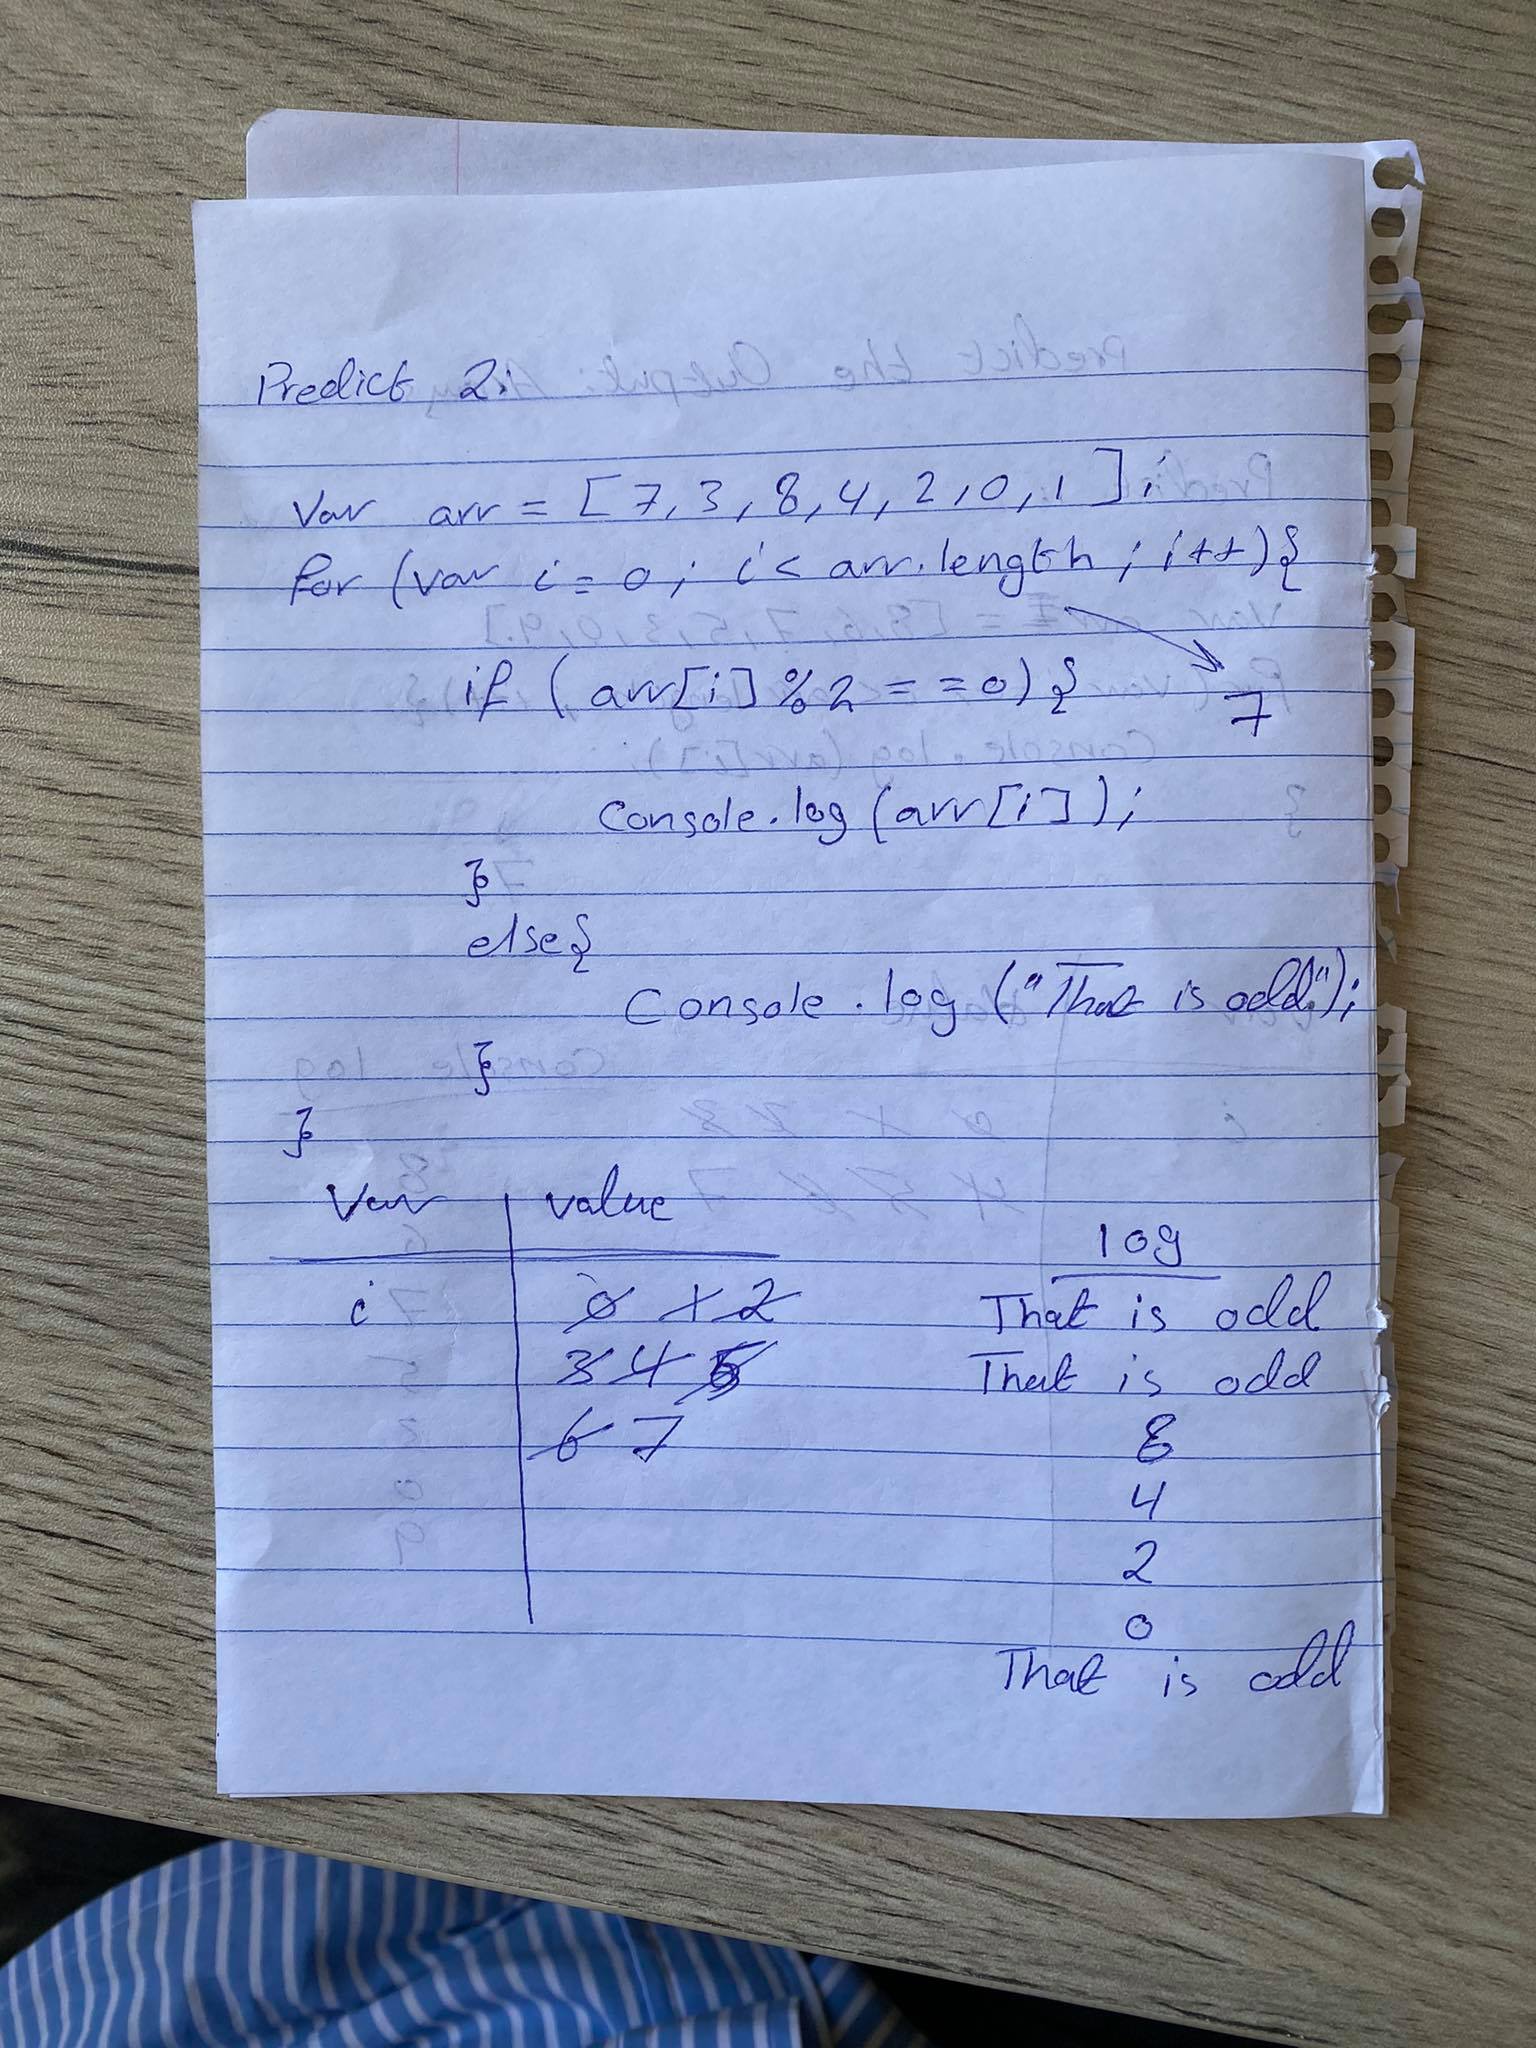 Predict 2:
Var arr = [7, 3, 8, 4, 2, 0, 1];
for (var i = 0; i < arr.length; i++){
if (arr[i] % 2 == 0) {
7
Console.log (arr[i]);
}
else{
Console.log ("That is odd");
}
}
Var value
log
i 0 1 2 That is odd
3 4 5 That is odd
6 7 8
4
2
0
That is odd